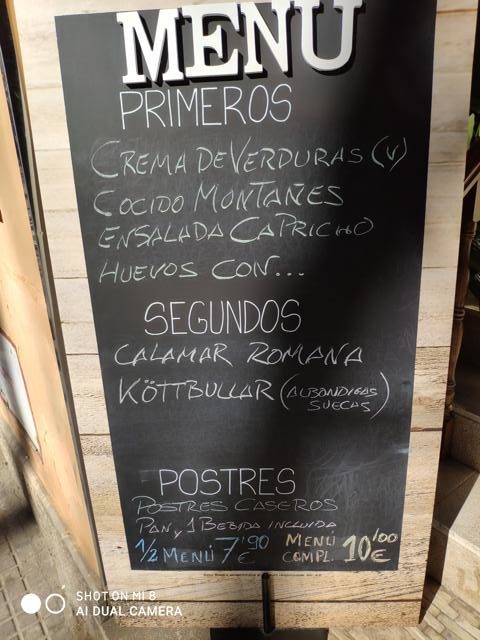 MENÚ
PRIMEROS
CREMA DE VERDURAS (V)
COCIDO MONTAÑES
ENSALADA CAPRICHO
HUEVOS CON...
SEGUNDOS
CALAMAR ROMANA
KÖTTBULLAR (ALBONDIGAS
SUECAS)
POSTRES
POSTRES CASEROS
PAN y 1 BEBIDA INCLUIDA
1/2 MENÚ 7'90 €
MENÚ COMPL. 10'00 €
SHOT ON MI 8
AI DUAL CAMERA